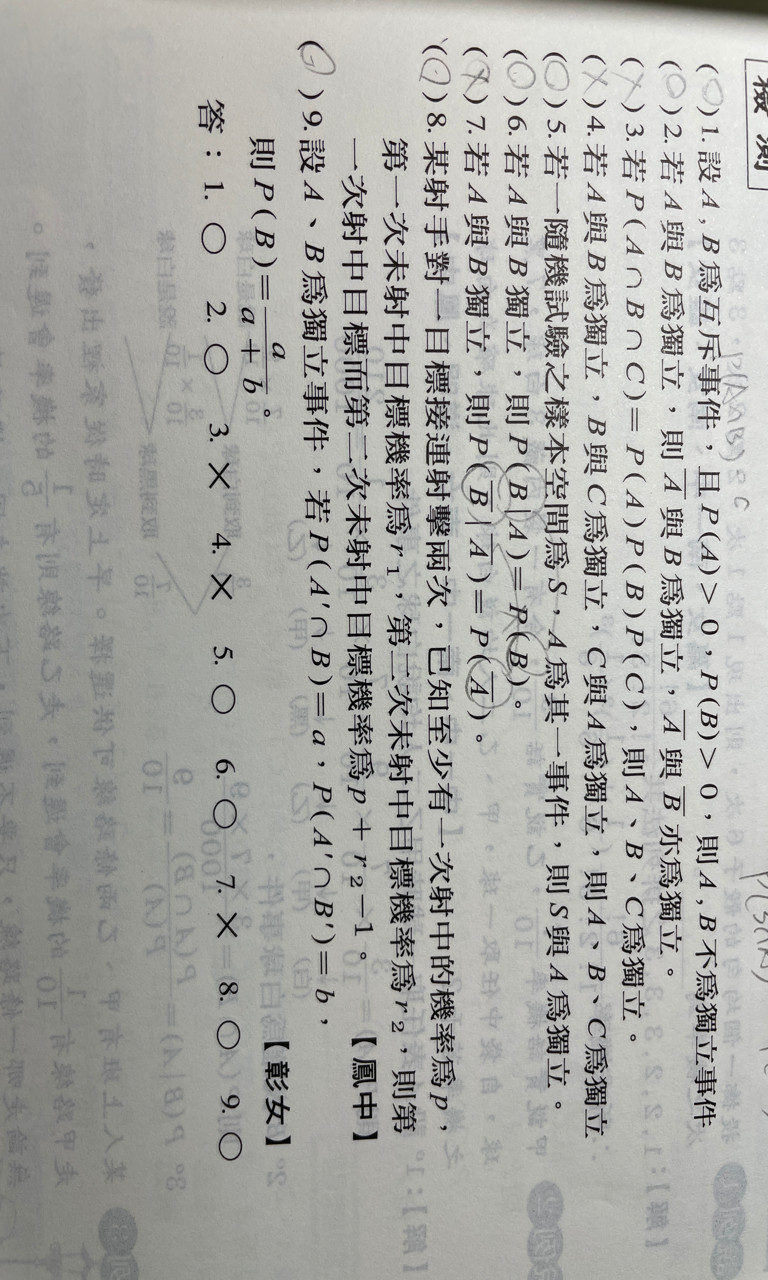 檢測
(○) 1. 設 A , B 為互斥事件，且 P(A)＞0，P(B)＞0，則 A , B 不為獨立事件
(○) 2. 若 A 與 B 為獨立，則 A̅ 與 B 為獨立，A̅ 與 B̅ 亦為獨立。
(×) 3. 若 P(A∩B∩C)＝P(A)P(B)P(C)，則 A、B、C 為獨立。
(×) 4. 若 A 與 B 為獨立，B 與 C 為獨立，C 與 A 為獨立，則 A、B、C 為獨立
(○) 5. 若一隨機試驗之樣本空間為 S，A 為其一事件，則 S 與 A 為獨立。
(○) 6. 若 A 與 B 獨立，則 P(B|A)＝P(B)。
(×) 7. 若 A 與 B 獨立，則 P(B̅|A̅)＝P(A̅)。
(○) 8. 某射手對一目標接連射擊兩次，已知至少有一次射中的機率為 p，
第一次未射中目標機率為 r₁，第二次未射中目標機率為 r₂，則第
一次射中目標而第二次未射中目標機率為 p＋r₂－1。【鳳中】
(○) 9. 設 A、B 為獨立事件，若 P(A'∩B)＝a，P(A'∩B')＝b，
則 P(B)＝a/(a＋b)。【彰女】
答：1. ○ 2. ○ 3. × 4. × 5. ○ 6. ○ 7. × 8. ○ 9. ○